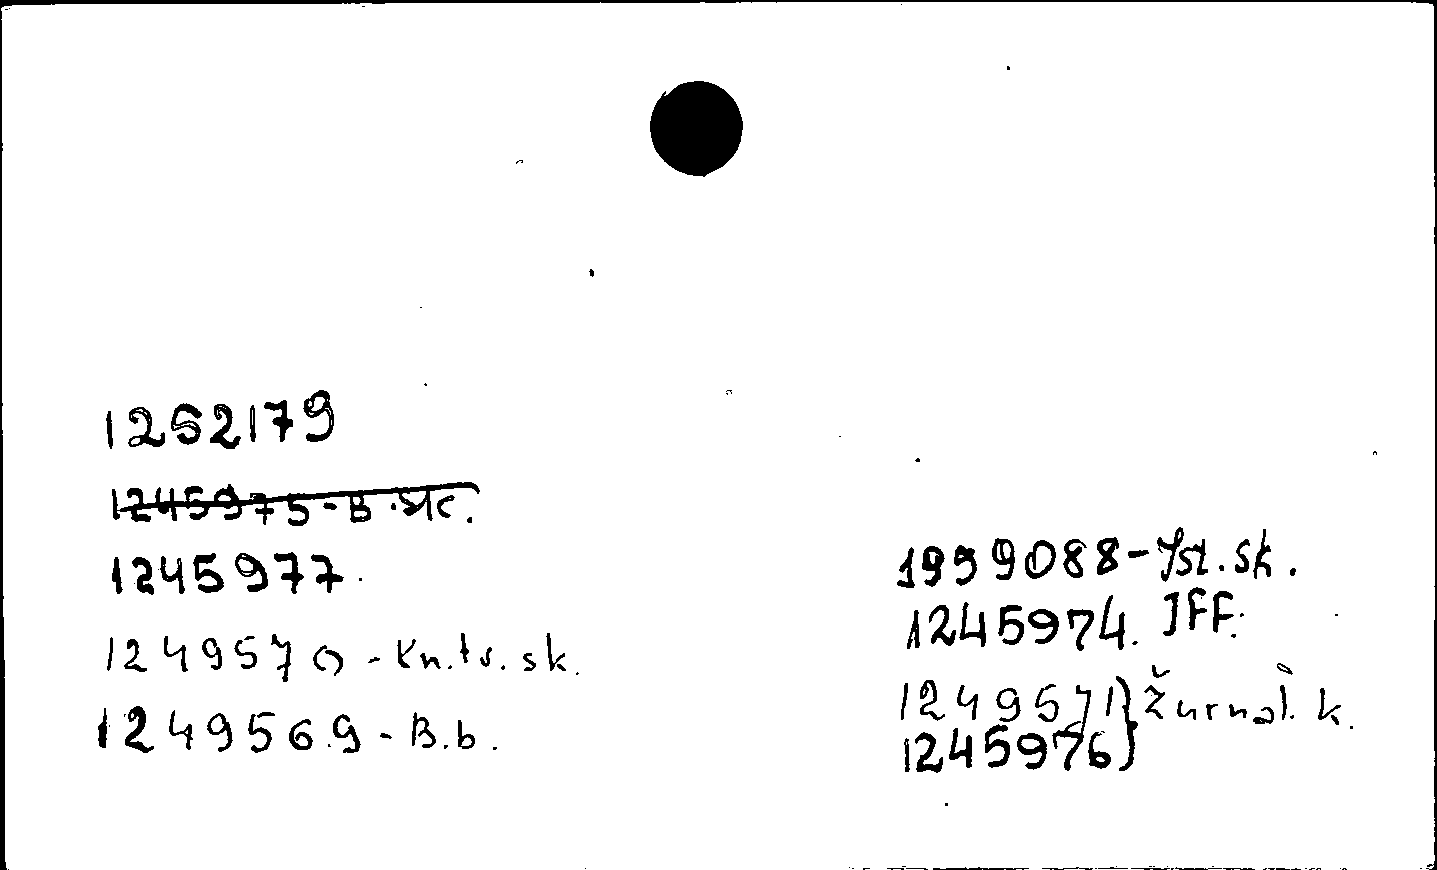 1252179
1245975 - B.
1245977.
1249570 - Kn.tv.sk.
1249569 - B.b.
1959088 - Ist.sk.
1245974. IFF.
1249571} Žurnal. k.
1245976}